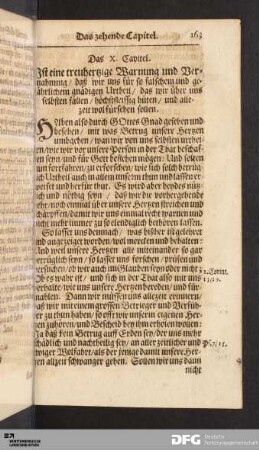 Das zehende Capitel. 163
Das X. Capitel.
Ist eine treuhertzige Warnung und Ver-
mahnung / daß wir uns für so falschen und ge-
fährlichem gnädigen Urtheil / das wir über uns
selbsten fällen / höchstfleissig hüten / und alle-
zeit wol fürsehen sollen.
Haben also durch GOttes Gnad gesehen und
besehen / mit was Betrug unsere Hertzen
umbgehen / wan wir von uns selbsten urtheilen
und für Gott bestehen mögen: Und sollen
nun fortfahren / zu erforschen / wie sich solch betrüg-
lich Urtheil auch in
und herfür thut. Es wird aber beydes nütz-
und nöthig seyn / daß wir die vorhergehende
noch einmal über unsere Hertzen streichen und
schärpffen / damit wir uns einmal recht warnen und
nicht mehr immer zu so elendiglich bethören lassen.
So lasset uns demnach / was bißher ist gelehret
und angezeiget worden / wol mercken und behalten:
Und weil unsere Hertzen alle miteinander so gar
betrüglich seyn / so lasset uns forschen / prüfen und
versuchen / ob wir auch im Glauben seyn oder nicht
2. Corint.
13 / v. 5.
wahr ist / und sich in der That also mit uns
verhalte / wie uns unsere Hertzen bereden / und für-
mahlen. Dann wir müssen uns allezeit erinnern /
daß wir mit einem grossen Betrieger und Verfüh-
rer zu thun haben / so offt wir unserm eigenen Her-
tzen zuhören / und Bescheid bey ihm erholen wollen:
Ja daß kein Betrug auff Erden sey / der uns mehr
schädlich und nachtheilig sey / an aller zeitlicher und
ewiger Wolfahrt / als der jenige damit unsere Her-
tzen allzeit schwanger gehen. Sollen wir uns dann
nicht
DFG Deutsche
Forschungsgemeinschaft